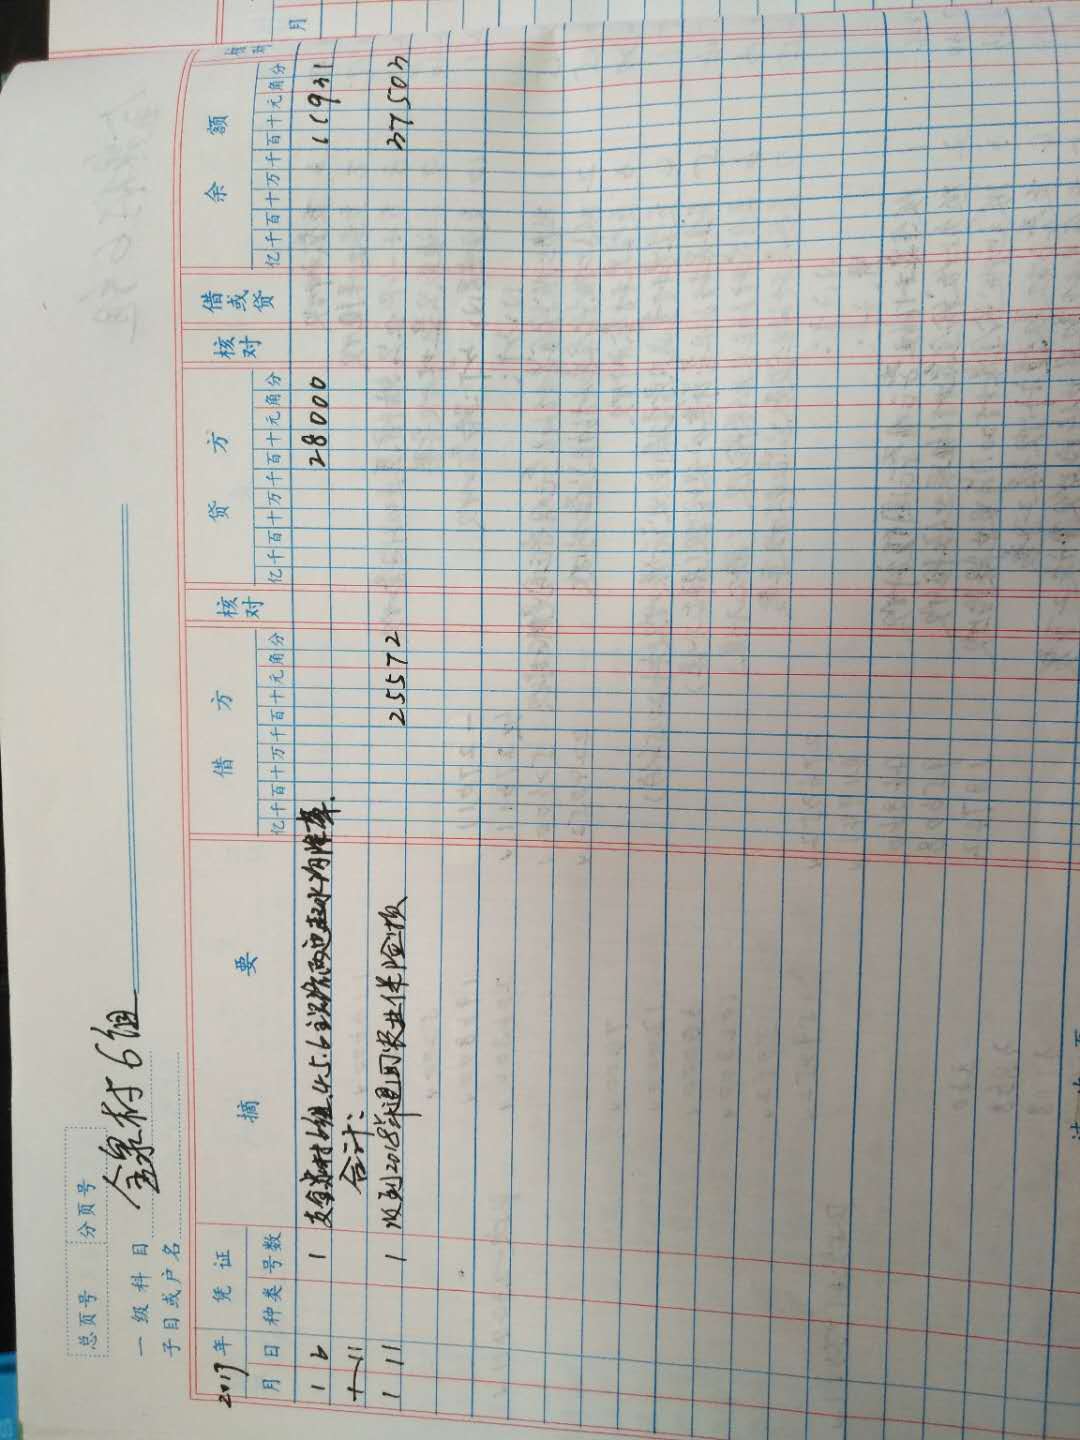 总页号 分页号
一级科目
子目或户名 金泉村6组
2017年 凭证 摘要 借方 核对 贷方 核对 借或贷 余额 核对
月 日 种类 号数 亿千百十万千百十元角分 亿千百十万千百十元角分 亿千百十万千百十元角分
1 6 1 支金泉村6组.4.5.6 两边 水沟 28000 11931
合计:
1 11 1 收到2018年退回农业保险款 25572 37503
月